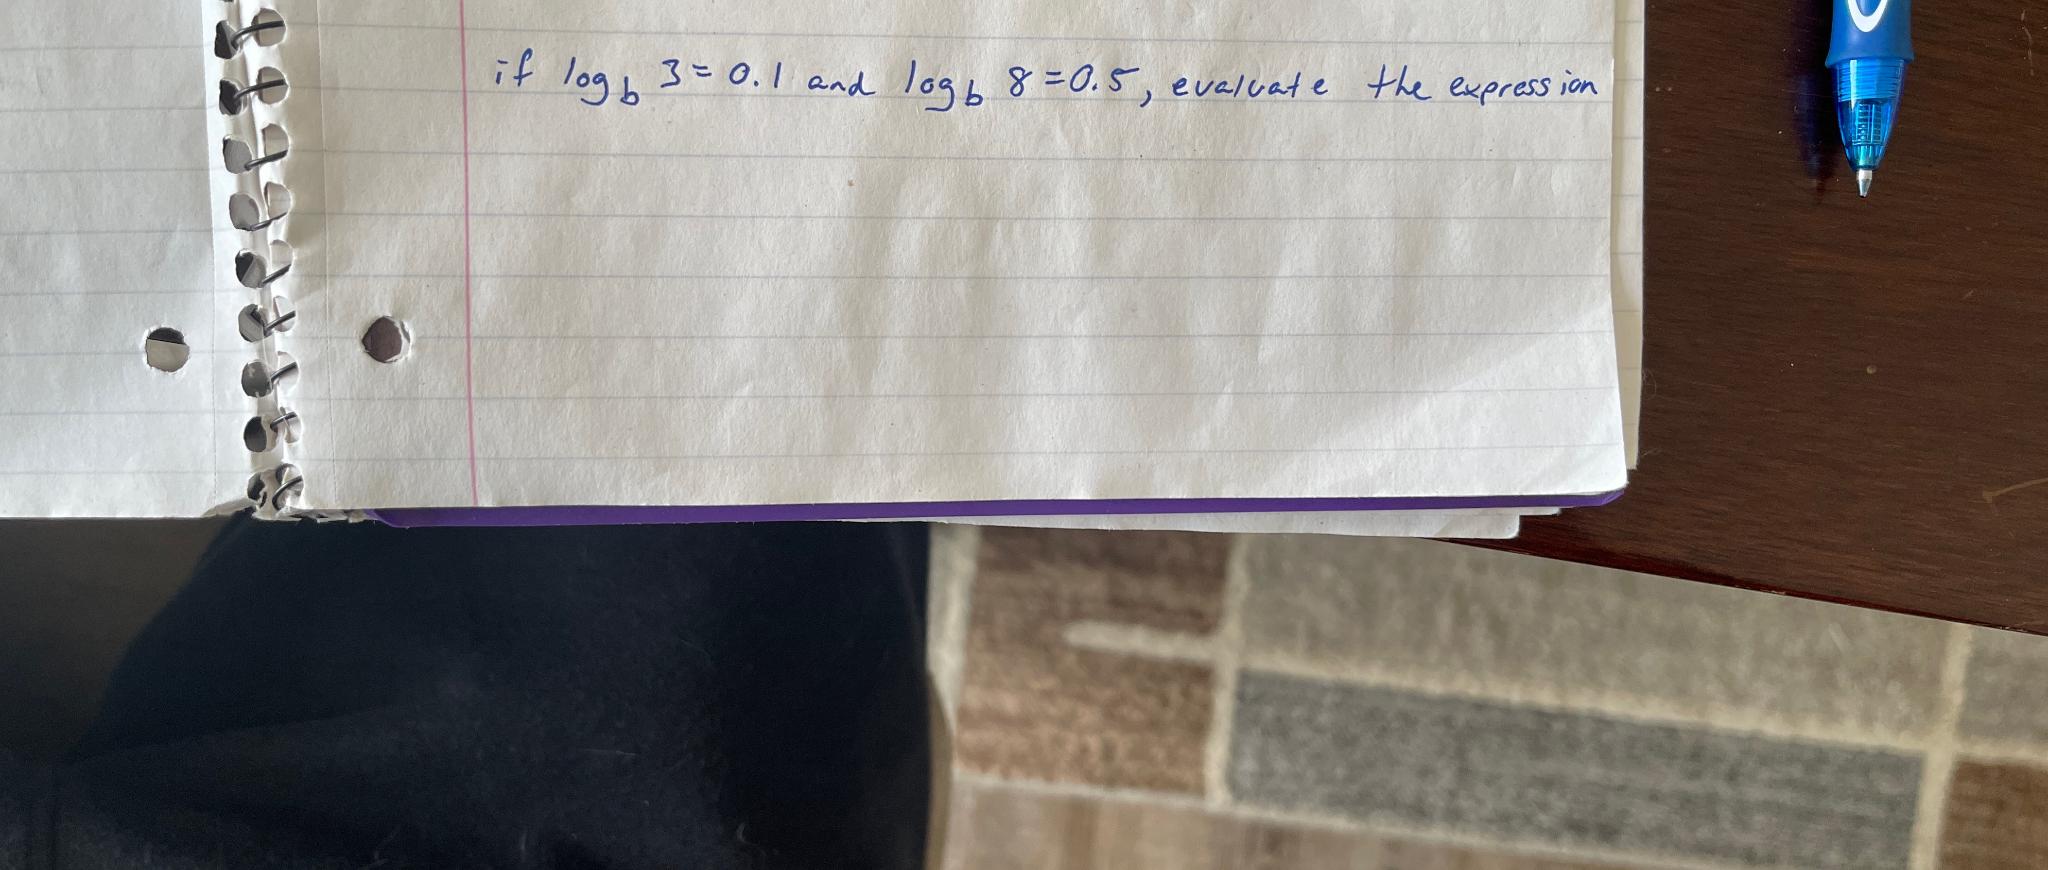 if log_b 3 = 0.1 and log_b 8 = 0.5, evaluate the expression